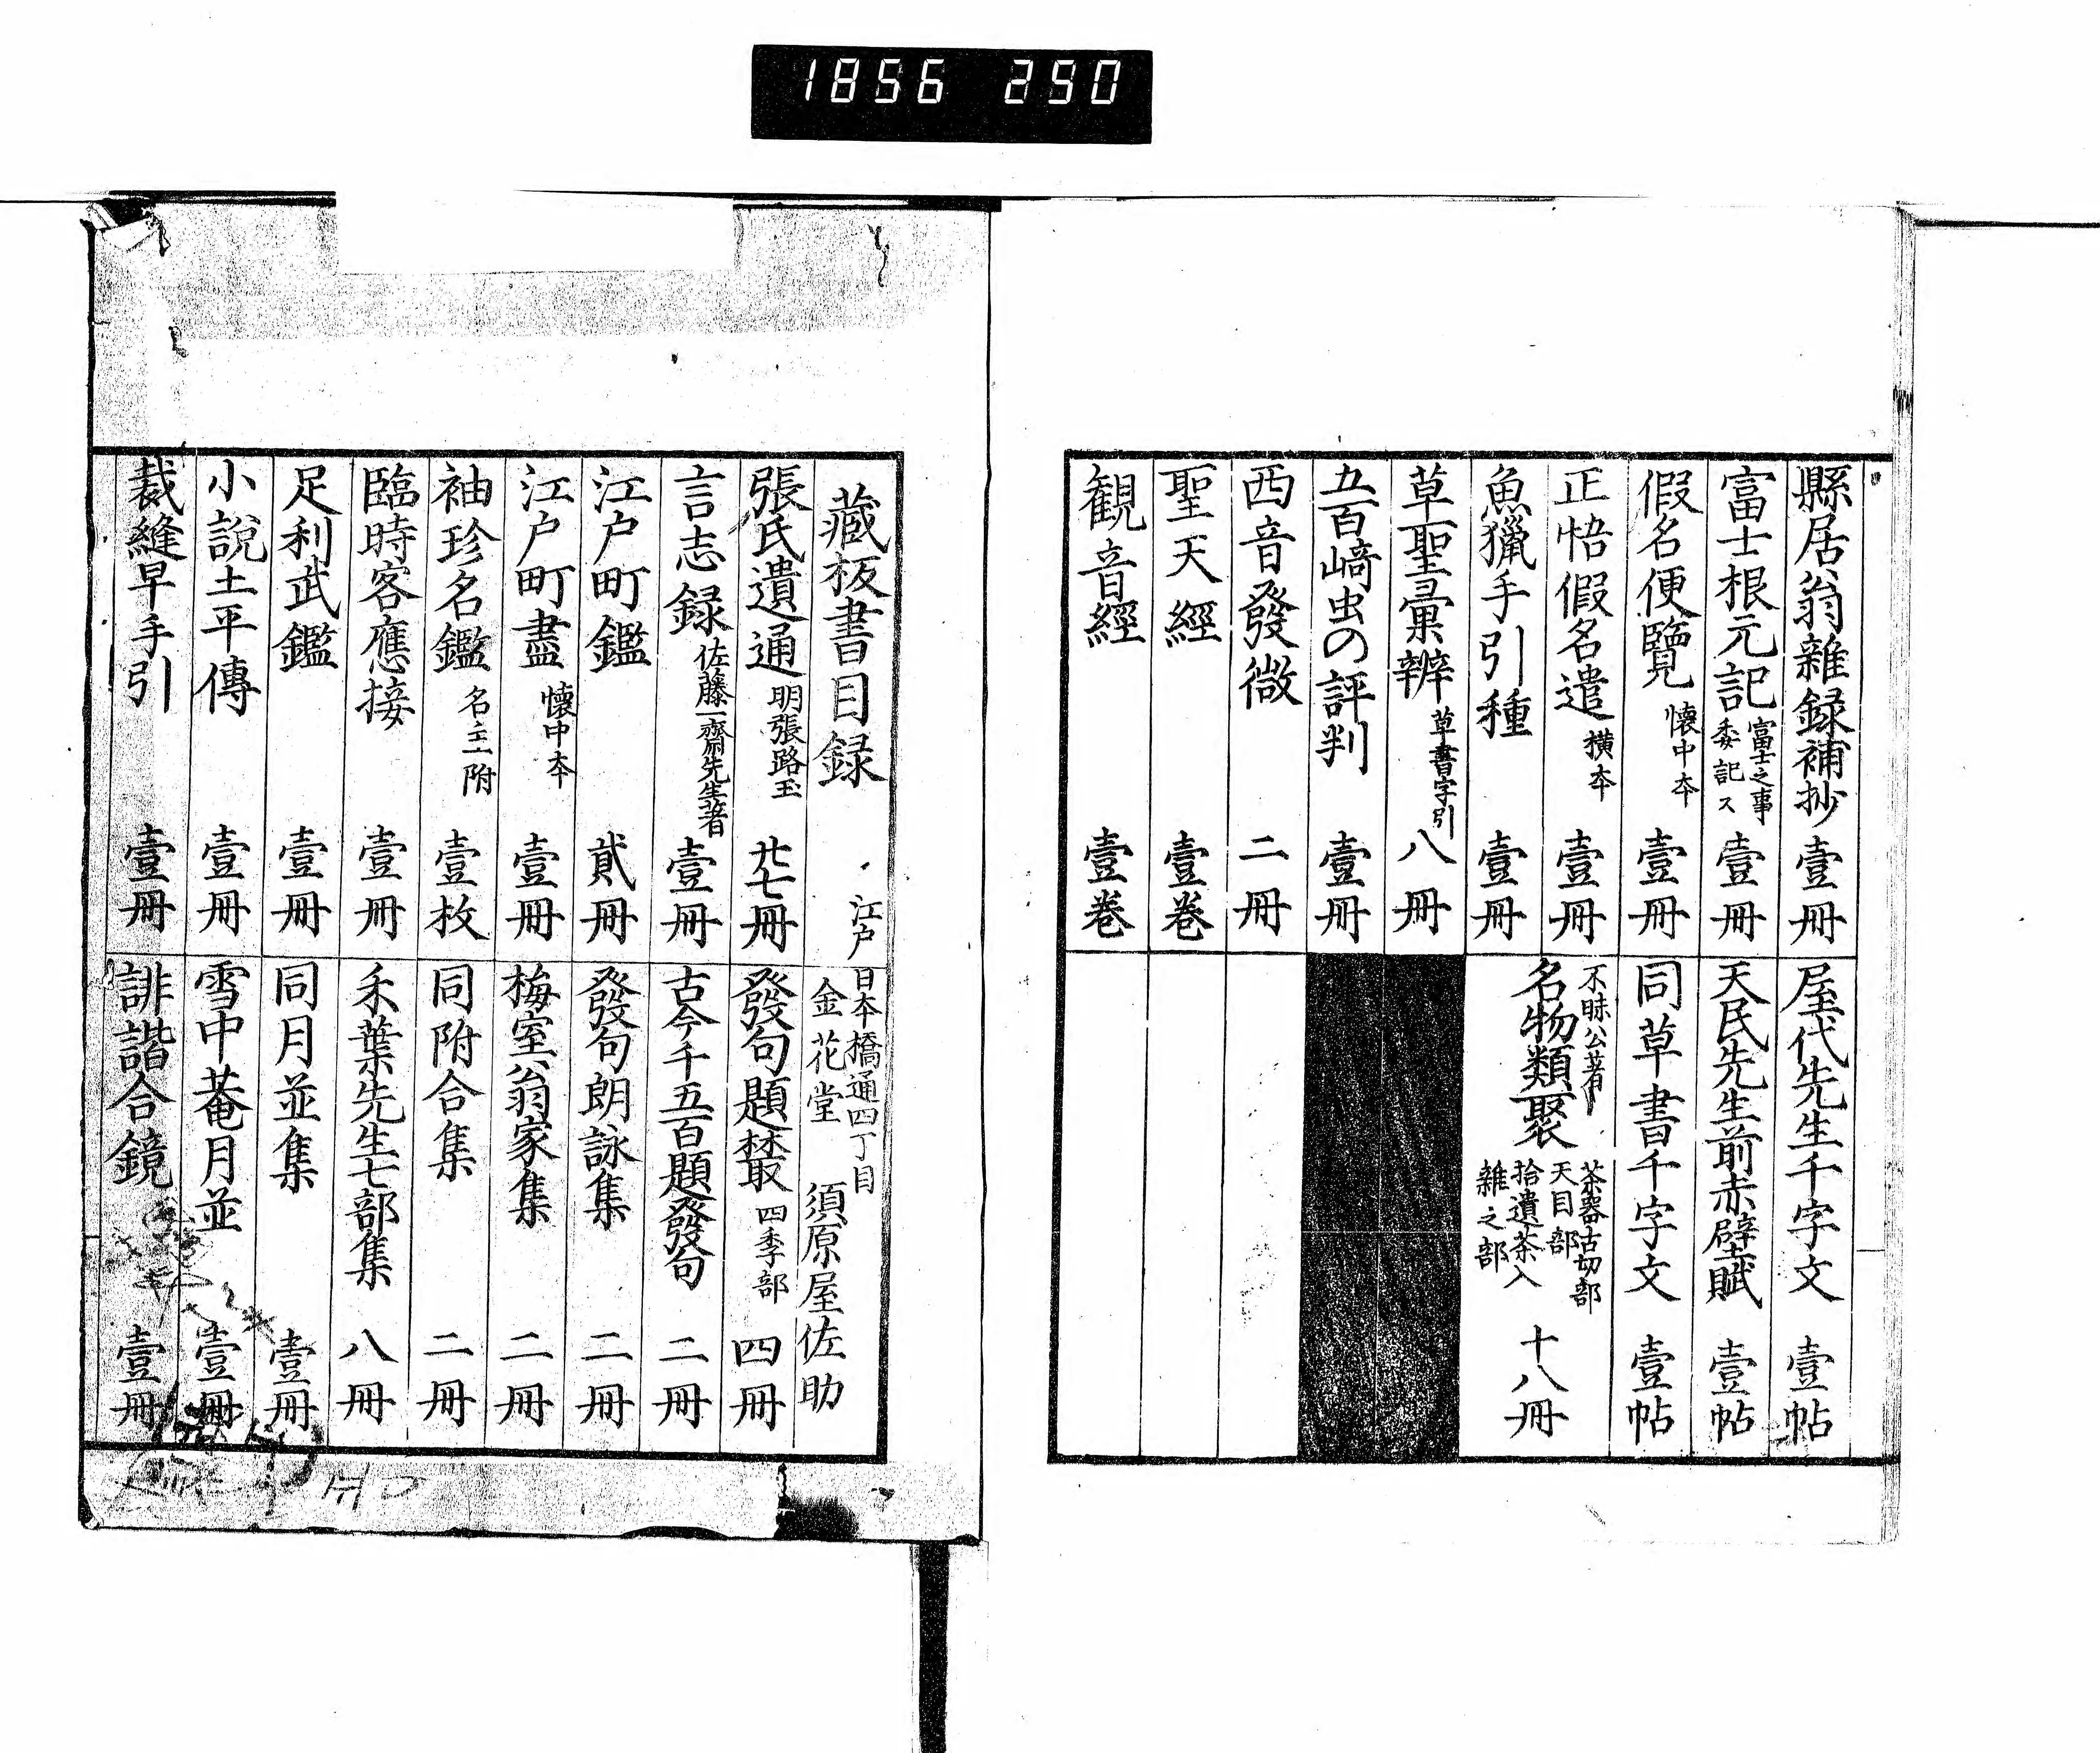 1856 250
縣居翁雜録補抄 壹冊
富士根元記 富士之事委記ス 壹冊
假名便覽 懐中本 壹冊
正悟假名遣 横本 壹冊
魚獵手引種 壹冊
草聖彙辨 草書字引 八冊
五百﨑虫の評判 壹冊
西音發微 二冊
聖天經 壹巻
観音經 壹巻
屋代先生千字文 壹帖
天民先生前赤壁賦 壹帖
同草書千字文 壹帖
不昧公著
名物類聚 茶器古切部 天目部 拾遺茶入 雜之部 十八冊
藏板書目録 江戸 日本橋通四丁目 金花堂 須原屋佐助
張氏遺通 明張路玉 廿七冊
言志録 佐藤一齋先生著 壹冊
江戸町鑑 貳冊
江戸町盡 懐中本 壹冊
袖珍名鑑 名主附 壹枚
臨時客應接 壹冊
足利武鑑 壹冊
小說土平傳 壹冊
裁縫早手引 壹冊
發句題叢 四季部 四冊
古今千五百題發句 二冊
發句朗詠集 二冊
梅室翁家集 二冊
同附合集 二冊
禾葉先生七部集 八冊
同月並集 壹冊
雪中菴月並 壹冊
誹諧合鏡 壹冊